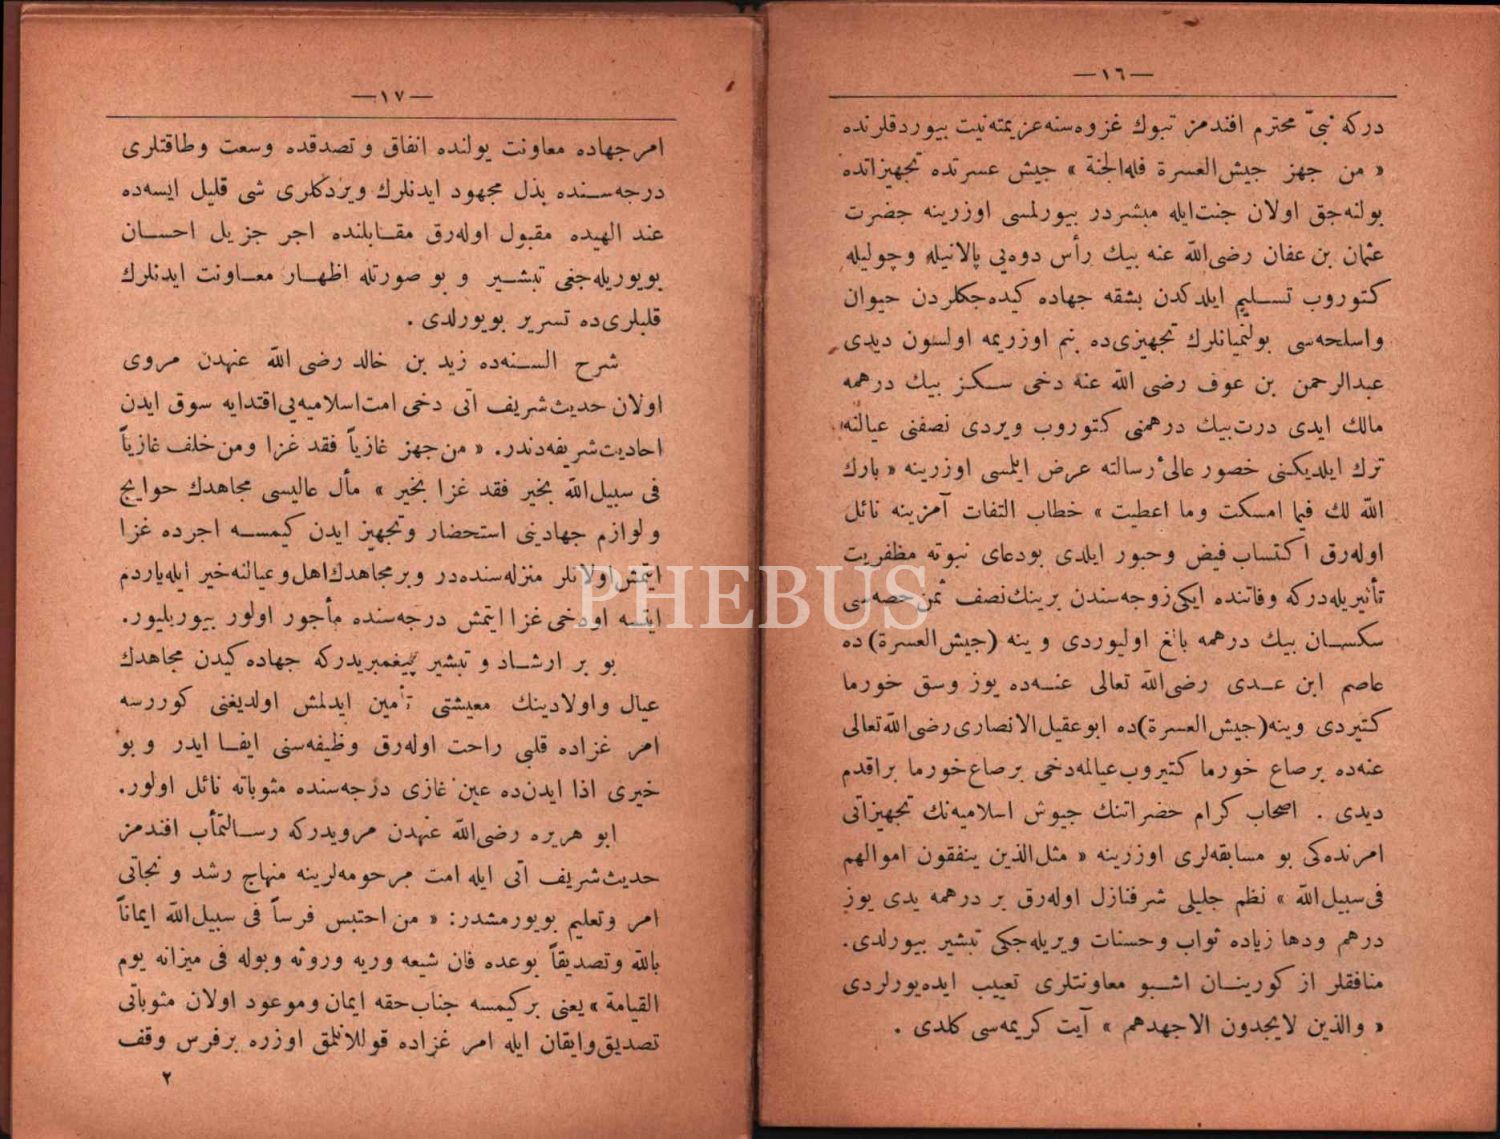 —١٦—
دركه نبیّ محترم افندمز تبوك غزوه‌سنه عزیمته نیت بیوردقلرنده
« من جهز جیش العسرة فله الجنة » جیش عسرتده تجهیزاتده
بولنه‌جق اولان جنت ایله مبشردر بیورلمسی اوزرینه حضرت
عثمان بن عفان رضی الله عنه بیك رأس دوه‌یی پالانیله وچولیله
كتوروب تسلیم ایلدكدن بشقه جهاده كیده‌جكلردن حیوان
واسلحه‌سی بولنمیانلرك تجهیزی‌ده بنم اوزریمه اولسون دیدی
عبدالرحمن بن عوف رضی الله عنه دخی سكز بیك درهمه
مالك ایدی درت بیك درهمنی كتوروب ویردی نصفنی عیالنه
ترك ایلدیكنی حضور عالیٔ رسالته عرض ایلمسی اوزرینه « بارك
الله لك فیما امسكت وما اعطیت » خطاب التفات آمزینه نائل
اوله‌رق اكتساب فیض وحبور ایلدی بودعای نبوته مظفریت
تأثیریله‌دركه وفاتنده ایكی زوجه‌سندن برینك نصف ثمن حصه‌سی
سكسان بیك درهمه بالغ اولیوردی و ینه (جیش العسرة) ده
عاصم ابن عدی رضی الله تعالی عنه‌ده یوز وسق خورما
كتیردی وینه (جیش العسرة) ده ابو عقیل الانصاری رضی الله تعالی
عنه‌ده برصاع خورما كتیروب عیالمه‌دخی برصاع خورما براقدم
دیدی . اصحاب كرام حضراتنك جیوش اسلامیه‌نك تجهیزاتی
امرنده‌كی بو مسابقه‌لری اوزرینه « مثل الذین ینفقون اموالهم
فی سبیل الله » نظم جلیلی شرفنازل اوله‌رق بر درهمه یدی یوز
درهم ودها زیاده ثواب وحسنات ویریله‌جكی تبشیر بیورلدی.
منافقلر از كورینان اشبو معاونتلری تعییب ایده‌یورلردی
« والذین لایجدون الاجهدهم » آیت كریمه‌سی كلدی .
—١٧—
امر جهاده معاونت یولنده انفاق و تصدقده وسعت وطاقتلری
درجه‌سنده بذل مجهود ایدنلرك ویردكلری شی قلیل ایسه‌ده
عند الهیده مقبول اوله‌رق مقابلنده اجر جزیل احسان
بویوریله‌جغی تبشیر و بو صورتله اظهار معاونت ایدنلرك
قلبلری‌ده تسریر بویورلدی .
شرح السنه‌ده زید بن خالد رضی الله عنهدن مروی
اولان حدیث شریف آتی دخی امت اسلامیه‌یی اقتدایه سوق ایدن
احادیث شریفه‌دندر. « من جهز غازیاً فقد غزا ومن خلف غازیاً
فی سبیل الله بخیر فقد غزا بخیر » مأل عالیسی مجاهدك حوایج
و لوازم جهادینی استحضار وتجهیز ایدن كیمسه اجرده غزا
ایتمش اولانلر منزله‌سنده‌در و بر مجاهدك اهل و عیالنه خیر ایله یاردم
ایتسه اودخی غزا ایتمش درجه‌سنده مأجور اولور بیوریلیور.
بو بر ارشاد و تبشیر پیغمبریدركه جهاده كیدن مجاهدك
عیال واولادینك معیشتی تأمین ایدلمش اولدیغنی كوررسه
امر غزاده قلبی راحت اوله‌رق وظیفه‌سنی ایفا ایدر و بو
خیری اذا ایدن‌ده عین غازی درجه‌سنده مثوباته نائل اولور.
ابو هریره رضی الله عنهدن مرویدركه رسالتمأب افندمز
حدیث شریف آتی ایله امت مرحومه‌لرینه منهاج رشد و نجاتی
امر وتعلیم بویورمشدر: « من احتبس فرساً فی سبیل الله ایماناً
بالله وتصدیقاً بوعده فان شیعه وریه وروثه وبوله فی میزانه یوم
القیامة » یعنی بر كیمسه جناب حقه ایمان وموعود اولان مثوباتی
تصدیق وایقان ایله امر غزاده قوللانلمق اوزره برفرس وقف
٢
PHEBUS